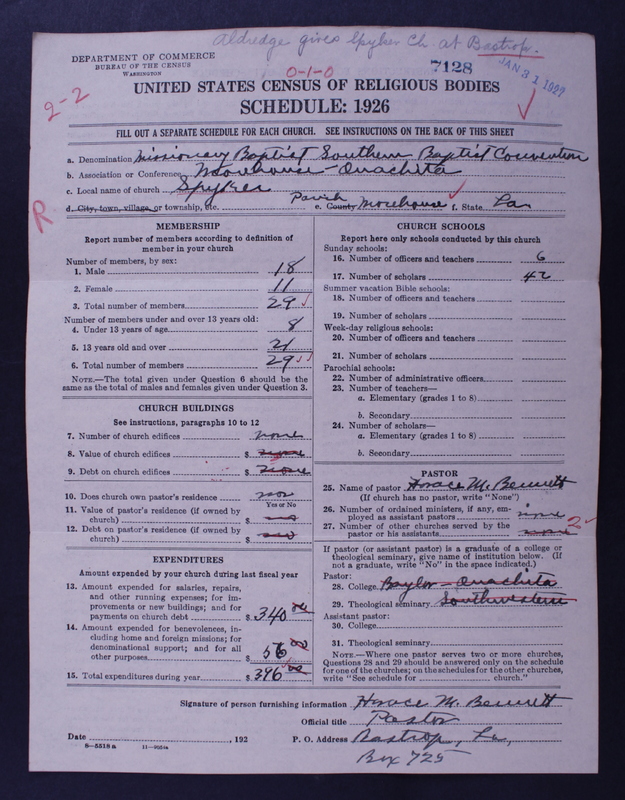 Aldredge gives Spyker Ch. at Bastrop.
DEPARTMENT OF COMMERCE
BUREAU OF THE CENSUS
WASHINGTON
7128
JAN 31 1927
0-1-0
2-2
UNITED STATES CENSUS OF RELIGIOUS BODIES
SCHEDULE: 1926
FILL OUT A SEPARATE SCHEDULE FOR EACH CHURCH. SEE INSTRUCTIONS ON THE BACK OF THIS SHEET
a. Denomination Missionary Baptist Southern Baptist Convention
b. Association or Conference Morehouse-Ouachita
c. Local name of church Spyker
d. City, town, village, or township, etc. Parish e. County Morehouse f. State La.
R
MEMBERSHIP
Report number of members according to definition of member in your church
Number of members, by sex:
1. Male 18
2. Female 11
3. Total number of members 29
Number of members under and over 13 years old:
4. Under 13 years of age 8
5. 13 years old and over 21
6. Total number of members 29
NOTE.—The total given under Question 6 should be the same as the total of males and females given under Question 3.
CHURCH BUILDINGS
See instructions, paragraphs 10 to 12
7. Number of church edifices none
8. Value of church edifices $ none
9. Debt on church edifices $ none
10. Does church own pastor's residence no
Yes or No
11. Value of pastor's residence (if owned by church) $ no
12. Debt on pastor's residence (if owned by church) $ no
EXPENDITURES
Amount expended by your church during last fiscal year
13. Amount expended for salaries, repairs, and other running expenses; for improvements or new buildings; and for payments on church debt $ 340 00
14. Amount expended for benevolences, including home and foreign missions; for denominational support; and for all other purposes $ 56 00
15. Total expenditures during year $ 396 00
CHURCH SCHOOLS
Report here only schools conducted by this church
Sunday schools:
16. Number of officers and teachers 6
17. Number of scholars 42
Summer vacation Bible schools:
18. Number of officers and teachers
19. Number of scholars
Week-day religious schools:
20. Number of officers and teachers
21. Number of scholars
Parochial schools:
22. Number of administrative officers
23. Number of teachers—
a. Elementary (grades 1 to 8)
b. Secondary
24. Number of scholars—
a. Elementary (grades 1 to 8)
b. Secondary
PASTOR
25. Name of pastor Horace M. Bennett
(If church has no pastor, write "None")
26. Number of ordained ministers, if any, employed as assistant pastors none
27. Number of other churches served by the pastor or his assistants none 2
If pastor (or assistant pastor) is a graduate of a college or theological seminary, give name of institution below. (If not a graduate, write "No" in the space indicated.)
Pastor:
28. College Baylor - Ouachita
29. Theological seminary Southwestern
Assistant pastor:
30. College
31. Theological seminary
NOTE.—Where one pastor serves two or more churches, Questions 28 and 29 should be answered only on the schedule for one of the churches; on the schedules for the other churches, write "See schedule for church."
Signature of person furnishing information Horace M. Bennett
Official title Pastor
Date , 192 P. O. Address Bastrop, La,
Box 725
8—5518 a 11—9554a